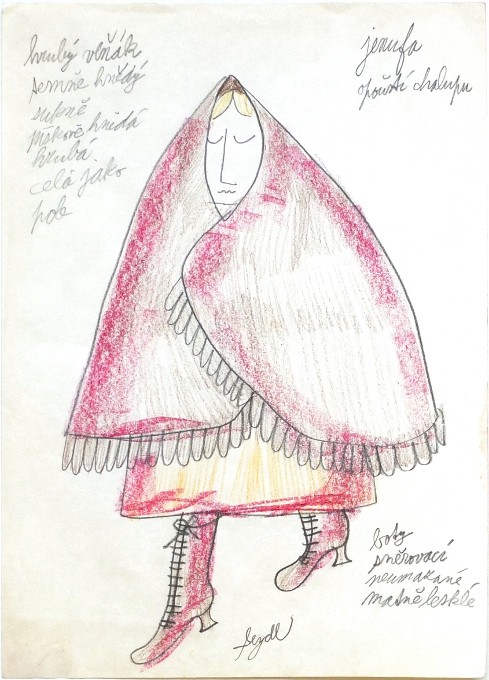 hrubý vlňák
temně hnědý
sukně
pískově hnědá
hrubá.
celá jako
pole
jenufa
opouští chalupu
boty
šněrovací
neumakané
matně lesklé
Seydl